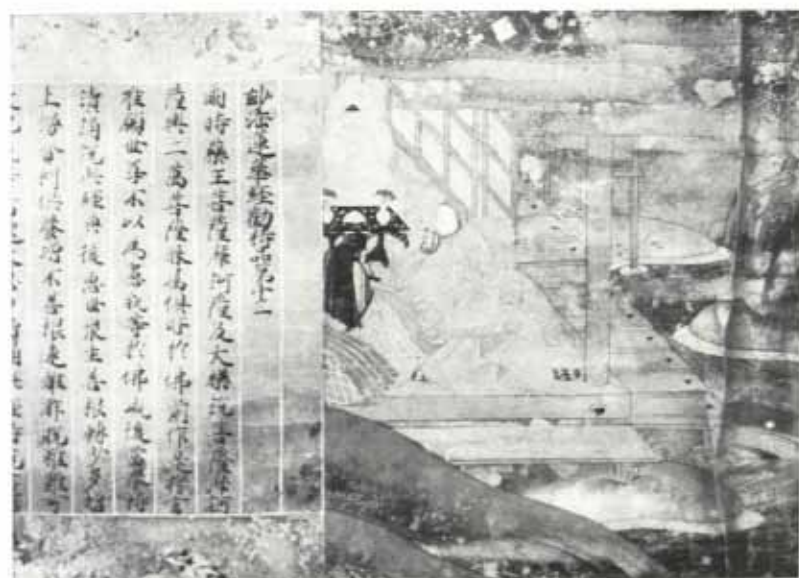 妙法蓮華經勸持品第十二
爾時藥王菩薩摩訶薩及大樂説菩薩摩訶
薩與二萬菩薩眷屬俱皆於佛前作是誓言
唯願世尊不以為慮我等於佛滅後當奉持
讀誦説此經典後惡世衆生善根轉少多增
上慢貪利供養增不善根遠離解脱雖難可